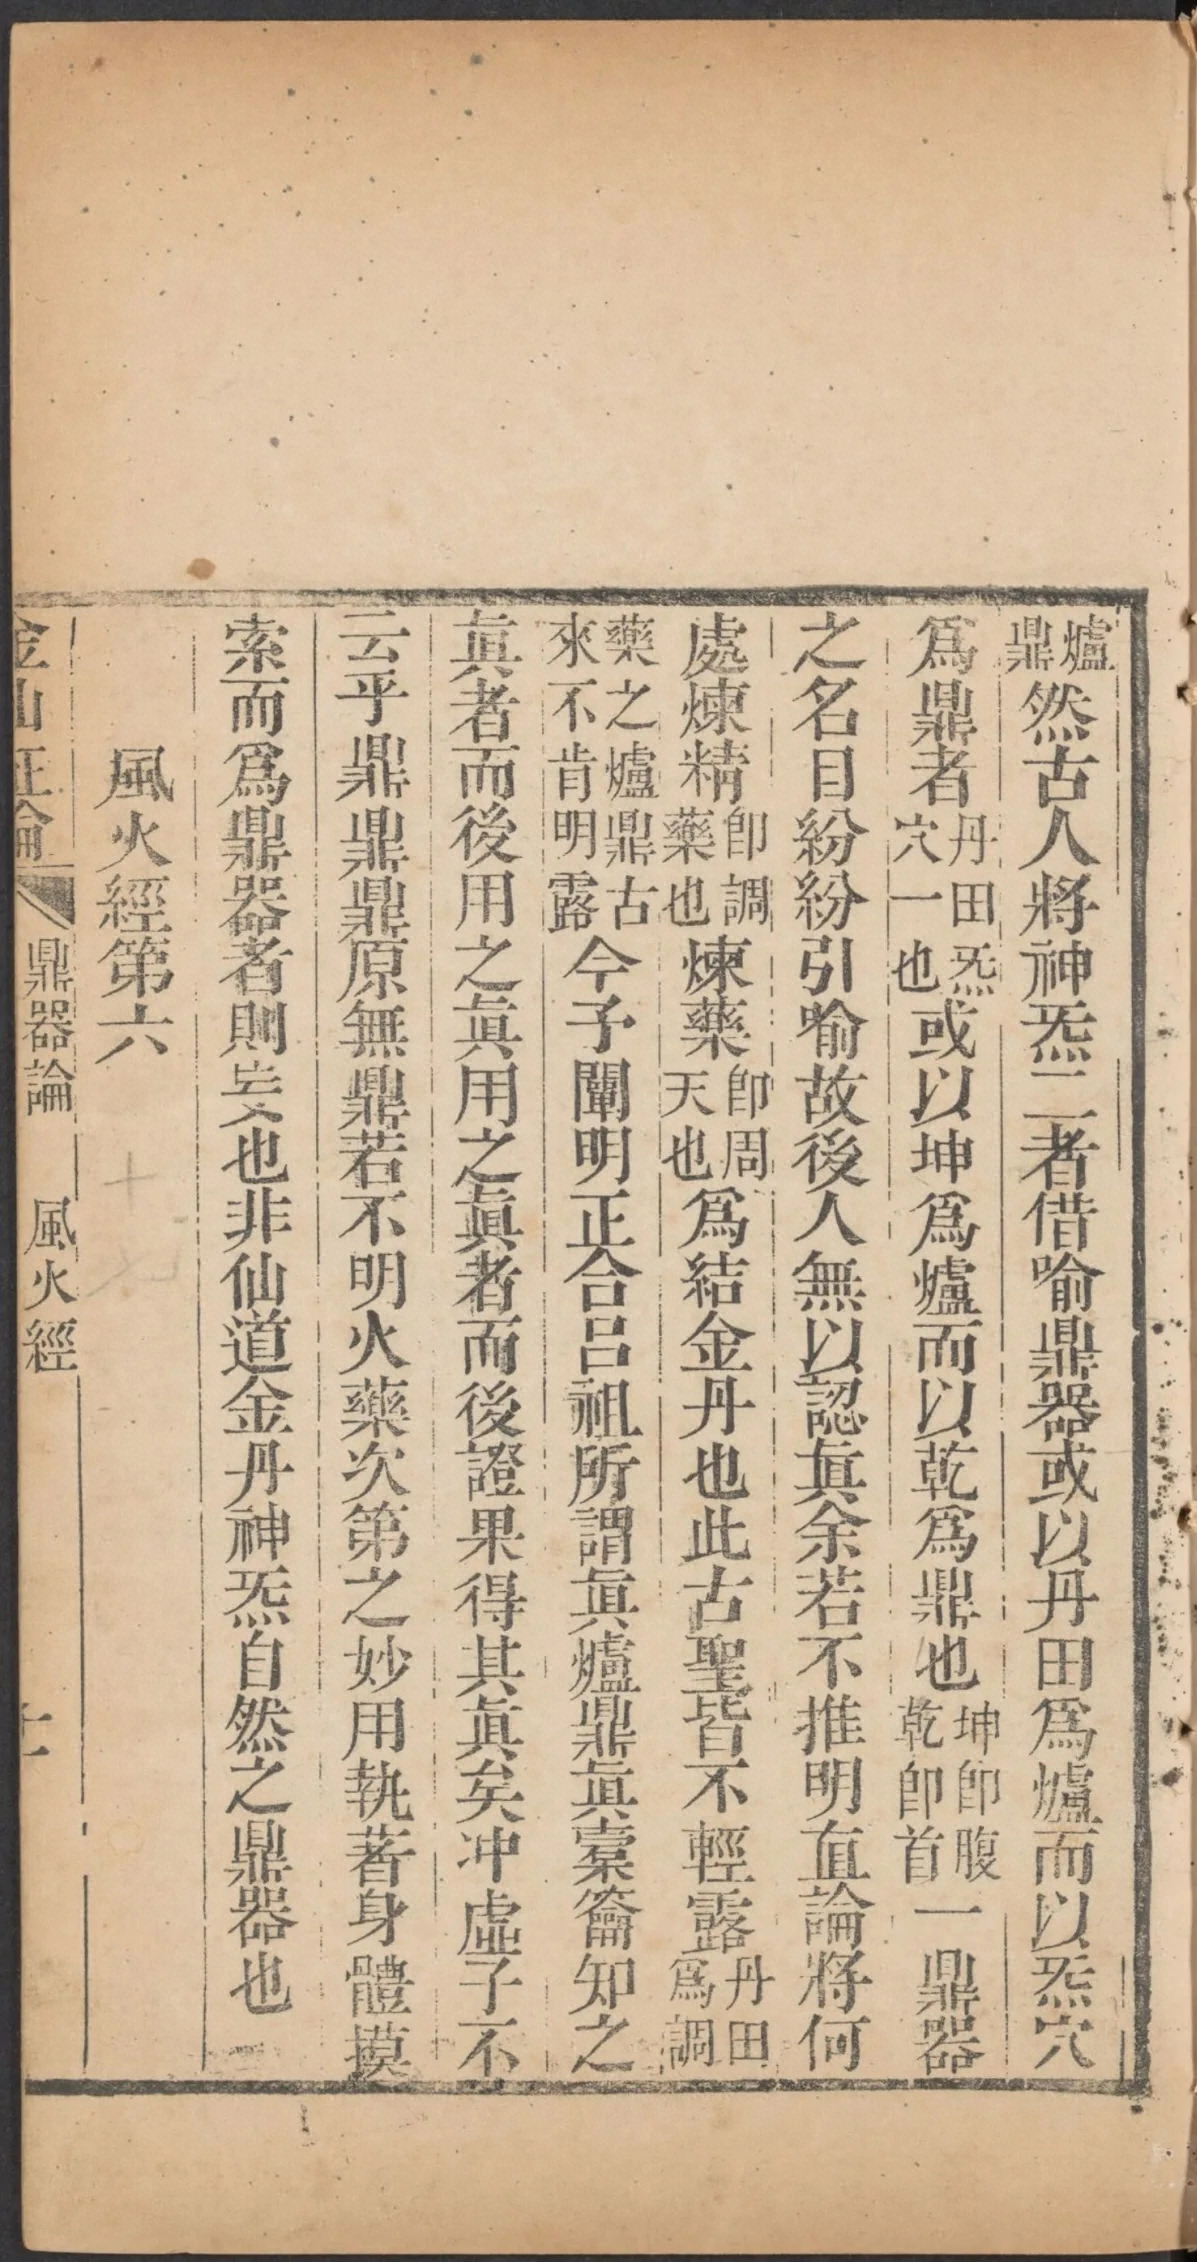 爐鼎然古人將神炁二者借喻鼎器或以丹田爲爐而以炁穴
爲鼎者丹田炁穴一也或以坤爲爐而以乾爲鼎也坤卽腹乾卽首一鼎器
之名目紛紛引喻故後人無以認眞余若不推明直論將何
處煉精卽調藥也煉藥卽周天也爲結金丹也此古聖皆不輕露丹田爲調
藥之爐鼎古來不肯明露今予闡明正合呂祖所謂眞爐鼎眞橐籥知之
眞者而後用之眞用之眞者而後證果得其眞矣冲虛子不
云乎鼎鼎鼎原無鼎若不明火藥次第之妙用執著身體摸
索而爲鼎器者則妄也非仙道金丹神炁自然之鼎器也
風火經第六
金仙正論 鼎器論 風火經